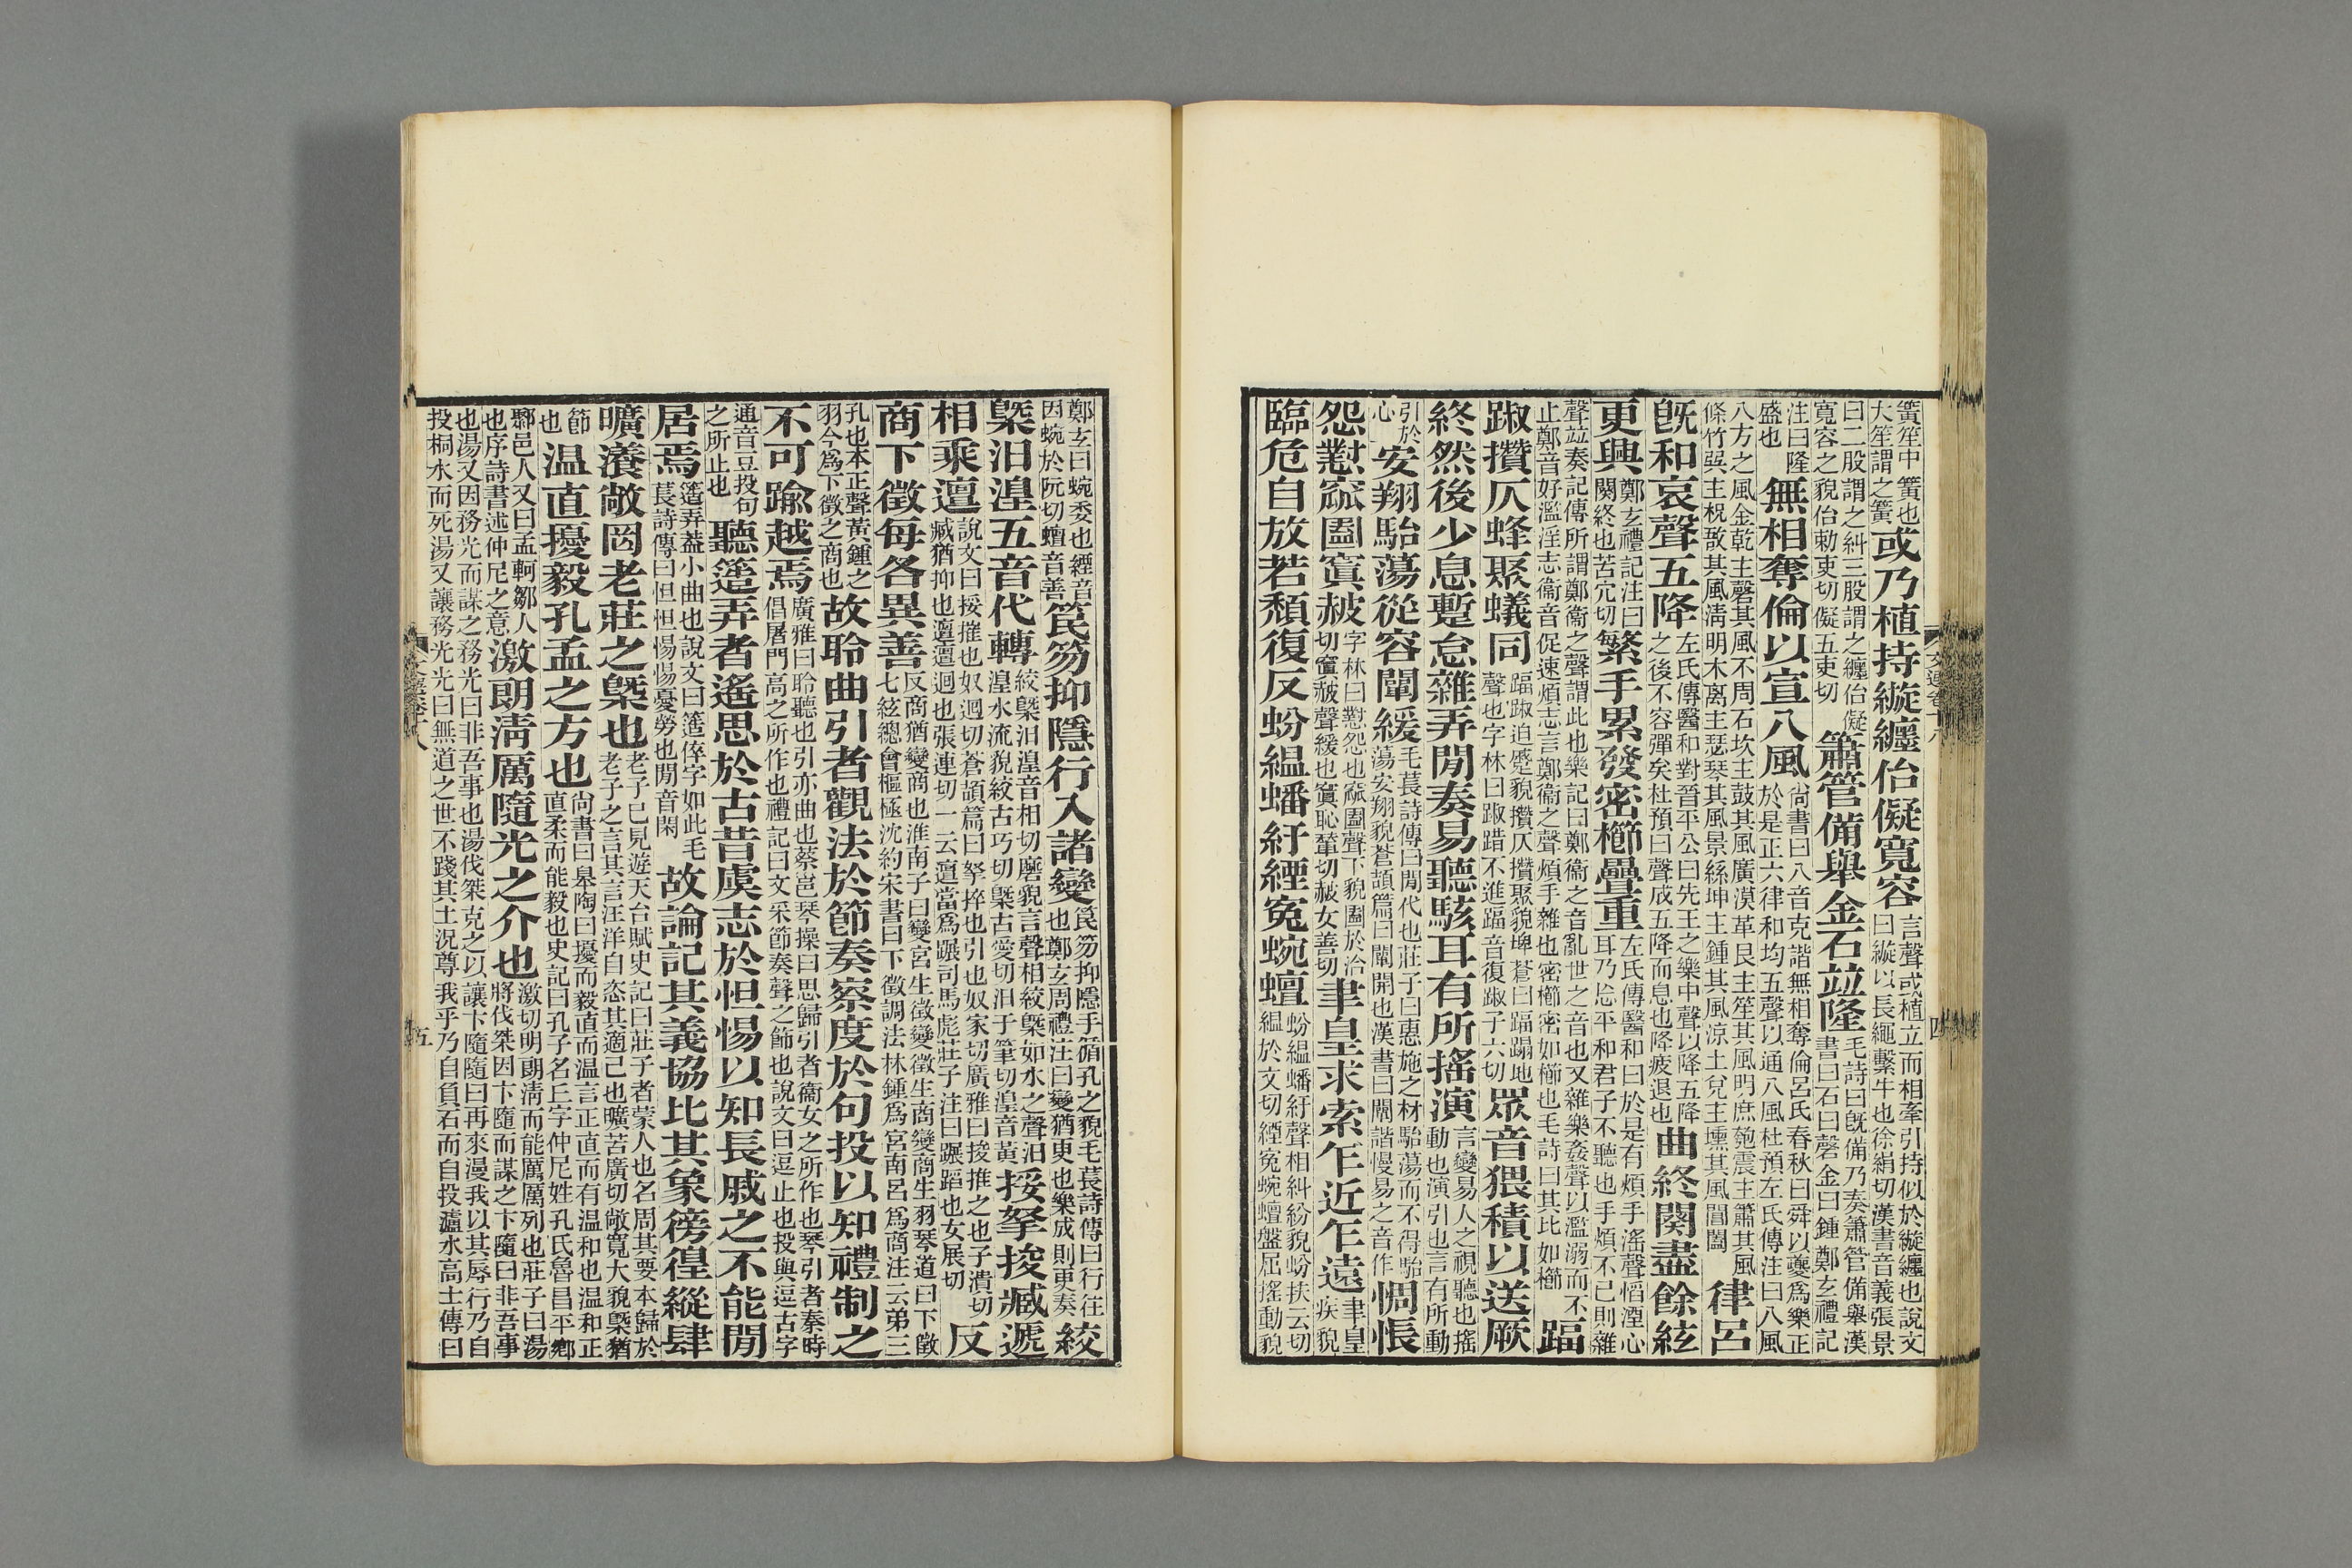 簧笙中簧也大笙謂之簧或乃植持縼纏佁儗寬容言聲或植立而相牽引持似於縼纏也說文曰縼以長繩繫牛也徐絹切漢書音義張景
曰二股謂之糾三股謂之纏佁儗寬容之貌佁勑吏切儗五吏切簫管備舉金石竝隆毛詩曰旣備乃奏簫管備舉漢書曰石曰磬金曰鍾鄭玄禮記
注曰隆盛也無相奪倫以宣八風尚書曰八音克諧無相奪倫呂氏春秋曰舜以夔爲樂正於是正六律和均五聲以通八風杜預左氏傳注曰八風
八方之風金乾主磬其風不周石坎主鼓其風廣漠革艮主笙其風明庶匏震主簫其風條竹巽主柷敔其風淸明木离主瑟琴其風景絲坤主鍾其風涼土兌主壎其風閶闔律呂
旣和哀聲五降左氏傳醫和對晉平公曰先王之樂中聲以降五降之後不容彈矣杜預曰聲成五降而息也降疲退也曲終闋盡餘絃
更興鄭玄禮記注曰闋終也苦穴切繁手累發密櫛疊重左氏傳醫和曰於是有煩手滛聲慆湮心耳乃忘平和君子不聽也手煩不已則雜
聲竝奏記傳所謂鄭衞之聲謂此也樂記曰鄭衞之音亂世之音也又雜樂姦聲以濫溺而不止鄭音好濫淫志衞音促速煩志言鄭衞之聲煩手雜也密櫛密如櫛也毛詩曰其比如櫛踾
踧攢仄蜂聚蟻同踾踧迫蹙貌攢仄攢聚貌埤蒼曰踾蹋地聲也字林曰踧踖不進踾音復踧子六切眾音猥積以送厥
終然後少息蹔怠雜弄閒奏易聽駭耳有所搖演言變易人之視聽也搖動也演引也言有所動
引於心安翔駘蕩從容闡緩毛萇詩傳曰閒代也莊子曰惠施之材駘蕩而不得駘蕩安翔貌蒼頡篇曰闡開也漢書曰闡諧慢易之音作惆悵
怨懟窳圔窴赧字林曰懟怨也窳圔聲下貌圔於洽切窴赧聲緩也窴恥輦切赧女善切聿皇求索乍近乍遠聿皇疾貌
臨危自放若頹復反蚡緼蟠紆緸冤蜿蟺蚡緼蟠紆聲相糾紛貌蚡扶云切緼於文切緸冤蜿蟺盤屈搖動貌
文選卷十八
四
鄭玄曰蜿委也緸音因蜿於阮切蟺音善笢笏抑隱行入諸變笢笏抑隱手循孔之貌毛萇詩傳曰行往也鄭玄周禮注曰變猶更也樂成則更奏絞
槩汨湟五音代轉絞槩汨湟音相切磨貌言聲相絞槩如水之聲汨湟水流貌絞古巧切槩古愛切汨于筆切湟音黃挼拏捘臧遞
相乘邅說文曰挼摧也奴迴切蒼頡篇曰拏捽也引也奴家切廣雅曰捘推之也子潰切臧猶抑也邅邅迴也張連切一云邅當爲蹍司馬彪莊子注曰蹍蹈也女展切反
商下徵每各異善反商猶變商也淮南子曰變宮生徵變徵生商變商生羽琴道曰下徵七絃總會樞極沈約宋書曰下徵調法林鍾爲宮南呂爲商注云弟三
孔也本正聲黃鍾之羽今爲下徵之商也故聆曲引者觀法於節奏察度於句投以知禮制之
不可踰越焉廣雅曰聆聽也引亦曲也蔡邕琴操曰思歸引者衞女之所作也琴引者秦時倡屠門高之所作也禮記曰文采節奏聲之節也說文曰逗止也投與逗古字
通音豆投句之所止也聽簉弄者遙思於古昔虞志於怛惕以知長戚之不能閒
居焉簉弄葢小曲也說文曰簉倅字如此毛萇詩傳曰怛怛惕惕憂勞也閒音閑故論記其義協比其象徬徨縱肆
曠瀁敞罔老莊之槩也老子已見遊天台賦史記曰莊子者蒙人也名周其要本歸於老子之言其言汪洋自恣其適己也曠苦廣切敞寬大貌槩猶
節也温直擾毅孔孟之方也尙書曰皋陶曰擾而毅直而温言正直而有温和也温和正直柔而能毅也史記曰孔子名丘字仲尼姓孔氏魯昌平鄉
鄹邑人又曰孟軻鄒人也序詩書述仲尼之意激朗淸厲隨光之介也激切明朗淸而能厲厲列也莊子曰湯將伐桀因卞隨而謀之卞隨曰非吾事
也湯又因務光而謀之務光曰非吾事也湯伐桀克之以讓卞隨隨曰再來漫我以其辱行乃自投桐水而死湯又讓務光光曰無道之世不踐其土況尊我乎乃自負石而自投瀘水高士傳曰
五